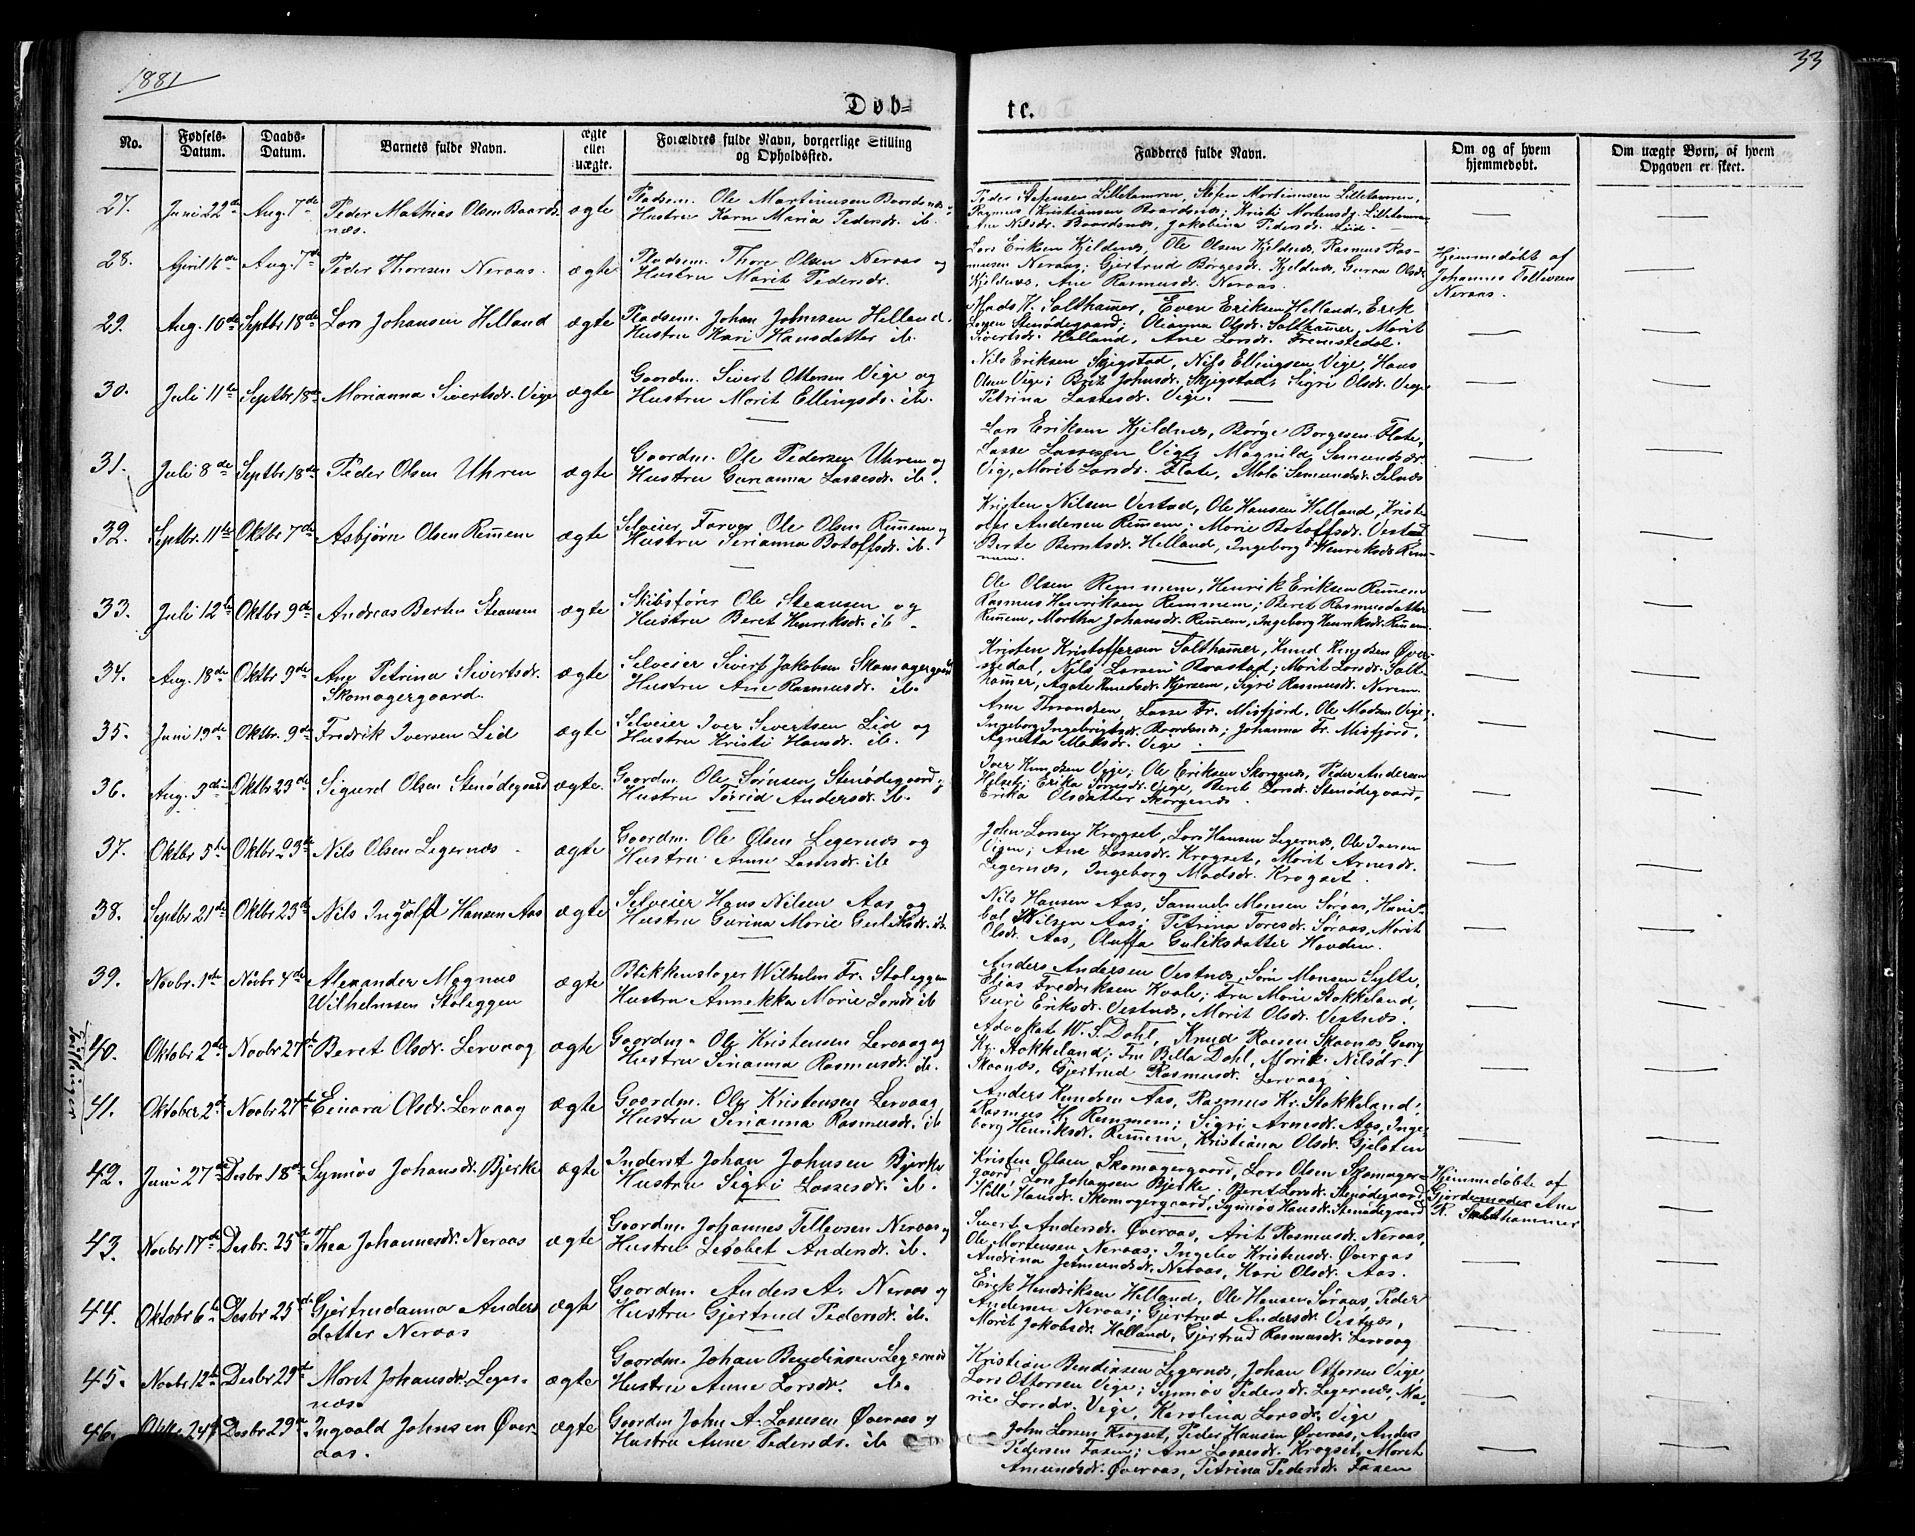 1881
33
Døb=
te.
No.
Fødsels-
Datum.
Daabs-
Datum.
Barnets fulde Navn.
ægte
eller
uægte.
Forældres fulde Navn, borgerlige Stilling
og Opholdssted.
Fadderes fulde Navn.
Om og af hvem
hjemmedøbt.
Om uægte Børn, af hvem
Opgaven er skeet.
27. Juni 22de Aug. 7de Peder Mathias Olsen Baards-
næs.
ægte
Pladsem. Ole Martinusen Baardsnæs
Hustru Karn Maria Pedersdr. ib.
Peder Stefensen Lilletanren, Stefen Mortensen Lilletanren,
Rasmus Kristiansen Baardsnæs; Kristi Mortensdr. Lilletanren
Ane Nilsdr. Baardsnæs, Jakobina Pedersdr. Liid.
28. April 16de Aug. 7de Peder Thoresen Neraas.
ægte
Pladsem. Thore Olsen Neraas og
Hustru Marit Pedersdr.
Lars Eriksen Kjeldnæs, Ole Olsen Kjeldnæs, Rasmus Ras-
musen Neraas; Gjertrud Børgesdr. Kjeldnæs, Guraa Olsdr.
Kjeldnæs, Ane Rasmusdr. Neraas.
Hjemmedøbt af
Johannes Tellevsen
Neraas.
29. Aug. 10de Septbr. 18de Lars Johansen Helland
ægte
Pladsem. Johan Johnsen Helland
Hustru Kari Hansdatter ib.
Mads K. Salthamer, Even Eriksen Helland, Erik
Larsen Stenødegaard; Oleanna Olsdr. Salthamer, Marit
Sivertsdr. Helland, Ane Larsdr. Fremstedal.
30. Juli 11te Septbr. 18de Marianna Sivertsdr. Vige
ægte
Gaardm. Sivert Ottersen Vige og
Hustru Marit Ellingsdr. ib.
Nils Eriksen Skjegstad, Nils Ellingsen Vige, Hans
Olsen Vige; Brit Johnsdr. Skjegstad, Sigri Olsdr. Vige,
Petrina Lassesdr. Vige.
31. Juli 8de Septbr. 18de Peder Olsen Uhren
ægte
Gaardm. Ole Pedersen Uhren og
Hustru Gurianna Lassesdr. ib.
Lars Eriksen Kjeldnæs, Børge Børgesen Flate,
Lasse Lassesen Vige, Magnild Semundsdr.
Vig, Marit Larsdr. Flate, Male Semundsdr. Selnæs
32. Septbr. 11te Oktbr. 7de Asbjørn Olsen Remem
ægte
Selveier, Farver Ole Olsen Remem og
Hustru Serianna Botolfsdr. ib.
Kristen Nilsen Vestad, Ole Hansen Helland, Kristo-
fer Andersen Remem; Marie Botolfsdr. Vestad
Berte Berntsdr. Helland, Ingeborg Henriksdr. Rem-
mem.
33. Juli 12te Oktbr. 9de Andreas Berten Steansen
ægte
Skibsfører Ole Steansen og
Hustru Beret Henriksdr. ib.
Ole Olsen Remmem, Henrik Eriksen Remem
Rasmus Henriksen Remmem; Beret Rasmusdatter
Remem, Martha Johansdr. Remem, Ingeborg Henriksdr. Remem.
34. Aug. 18de Oktbr. 9de Ane Petrina Sivertsdr.
Skomagergaard.
ægte
Selveier Sivert Jakobsen Skomagergaard
Hustru Ane Rasmusdr. ib.
Kristen Kristoffersen Salthamer, Knud Knudsen Øver-
stedal, Nils Larsen Raastad; Marit Larsdr. Salt-
hamer, Agate Knudsdr. Kjersem, Sigri Rasmusdr. Nerem.
35. Juni 19de Oktbr. 9de Fredrik Iversen Lid
ægte
Selveier Iver Sivertsen Lid og
Hustru Kristi Hansdr. ib.
Arne Thrandsen, Lasse Fr. Misfjord, Ole Madsen Vige;
Ingeborg Ingebrigtsdr. Baardsnæs; Johanna Fr. Misfjord,
Agnetta Madsdr. Vige.
36. Aug. 3die Oktbr. 23de Sigurd Olsen Stenødegaard
ægte.
Gaardm. Ole Sørnsen Stenødegaard og
Hustru Torrid Andersdr. ib.
Iver Knudsen Vige; Ole Eriksen Skorgenæs, Peder Andersen
Helset; Erika Sørnsdr. Vige, Beret Larsdr. Stenødegaard,
Erika Olsdatter Skorgenæs.
37. Oktbr. 5te Oktbr. 23de Nils Olsen Legernæs
ægte
Gaardm. Ole Olsen Legernæs og
Hustru Anne Larsdr. ib
John Larsen Krogset, Lars Hansen Legernæs, Ole Iversen
Vigen; Ane Lassesdr. Krogset, Marit Arnesdr.
Legernæs, Ingeborg Madsdr. Krogset.
38. Septbr. 21de Oktbr. 23de Nils Ingvald Hansen Aas
ægte
Selveier Hans Nilsen Aas og
Hustru Gurina Marie Guliksdr. ib.
Nils Hansen Aas, Samuel Monsen Søraas, Hani-
bal Nilsen Aas; Petrina Toresdr. Søraas, Marit
Olsdr. Aas, Oluffa Guliksdatter Hovden.
39. Novbr. 1ste Novbr. 4de Alexander Magnus
Wilhelmsen Stoleggen
ægte
Blikkenslager Wilhelm Fr. Stoleggen
Hustru Annekka Marie Larsdr. ib
Anders Andersen Vestnæs, Sørn Monsen Sylte,
Elias Fredriksen Kvale; Fru Marie Stokkeland,
Guri Eriksdr. Vestnæs, Marit Olsdr. Vestnæs.
Tvillinger
40. Oktobr. 2de Novbr. 27de Beret Olsdr. Lervaag
ægte
Gaardm. Ole Kristensen Lervaag og
Hustru Serianna Rasmusdr. ib.
Advokat W. S. Dahl, Knud Raesen Skaanæs Georg
Kr. Stokkeland; Fru Billa Dahl, Marit Nilsdr.
Skaanæs, Gjertrud Rasmusdr. Lervaag.
41. Oktober 2de Novbr. 27de Einara Olsdr. Lervaag
ægte
Gaardm. Ole Kristensen Lervaag
Hustru Serianna Rasmusdr. ib
Anders Knudsen Aas, Rasmus Kr. Stokkeland;
Rasmus H. Remmem; Sigri Arnesdr. Aas, Inge-
borg Henriksdr. Remem, Kristiana Olsdr. Gjelsten
42. Juni 27de Desbr. 18de Synnøv Johansdr. Bjerke
ægte
Inderst Johan Johnsen Bjerke
Hustru Sigri Lassesdr. ib.
Kristen Olsen Skomagergaard, Lars Olsen Skomager-
gaard, Lars Johansen Bjerke; Beret Larsdr. Stenødegaard
Hille Hansdr. Skomagergaard, Synnøv Hansdr. Stenødegaard
Hjemmedøbt af
Gjordemoder Ane
R. Salthammer
43. Novbr. 17de Desbr. 25de Thea Johannesdr. Neraas
ægte
Gaardm. Johannes Tellevsen Neraas og
Hustru Lesabet Andersdr. ib.
Sivert Andersdr. Øveraas, Arit Rasmusdr. Neraas,
Ole Mortensen Neraas; Ingelev Kristensdr. Øveraas
Andrina Jetmundsdr. Neraas, Kari Olsdr. Aas.
44. Oktobr 6te Desbr. 25de Gjertrudanna Anders
datter Neraas
ægte
Gaardm. Anders A. Neraas og
Hustru Gjertrud Pedersdr. ib.
Erik Hendriksen Helland, Ole Hansen Søraas, Peder
Andersen Neraas; Gjertrud Andersdr. Vestnæs,
Marit Jakobsdr. Helland, Gjertrud Rasmusdr. Lervaag
45. Novbr. 12te Desbr. 29de Marit Johansdr. Leger-
næs.
ægte
Gaardm. Johan Bendiksen Legernæs
Hustru Anne Larsdr. ib.
Kristian Bendiksen Legernæs, Johan Ottersen Vige,
Lars Ottersen Vige; Synnøv Pedersdr. Legernæs, Ma-
rie Larsdr. Vige, Karolina Larsdr. Vige
46. Oktbr. 24de Desbr. 29de Ingvald Johnsen Øver-
aas.
ægte
Gaardm. John A. Lassesen Øveraas og
Hustru Anne Pedersdr. ib
John Larsen Krogset, Peder Hansen Øveraas, Anders
Pedersen Faxen; Ane Lassesdr. Krogset, Marit
Amundsdr. Øveraas, Petrina Pedersdr. Faxen